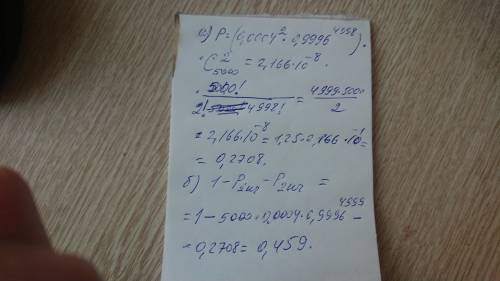 а) P = (0,0004² · 0,9996⁴⁹⁹⁸) ·
· C²₅₀₀₀ = 2,166·10⁻⁸ ·
· 5000! / 2! 4998! = 4999·5000 / 2
= 2,166·10⁻⁸ = 1,25·2,166·10⁻¹ =
= 0,2708.
б) 1 − P₁шт − P₂шт =
= 1 − 5000·0,0004·0,9996⁴⁹⁹⁹ −
− 0,2708 = 0,459.